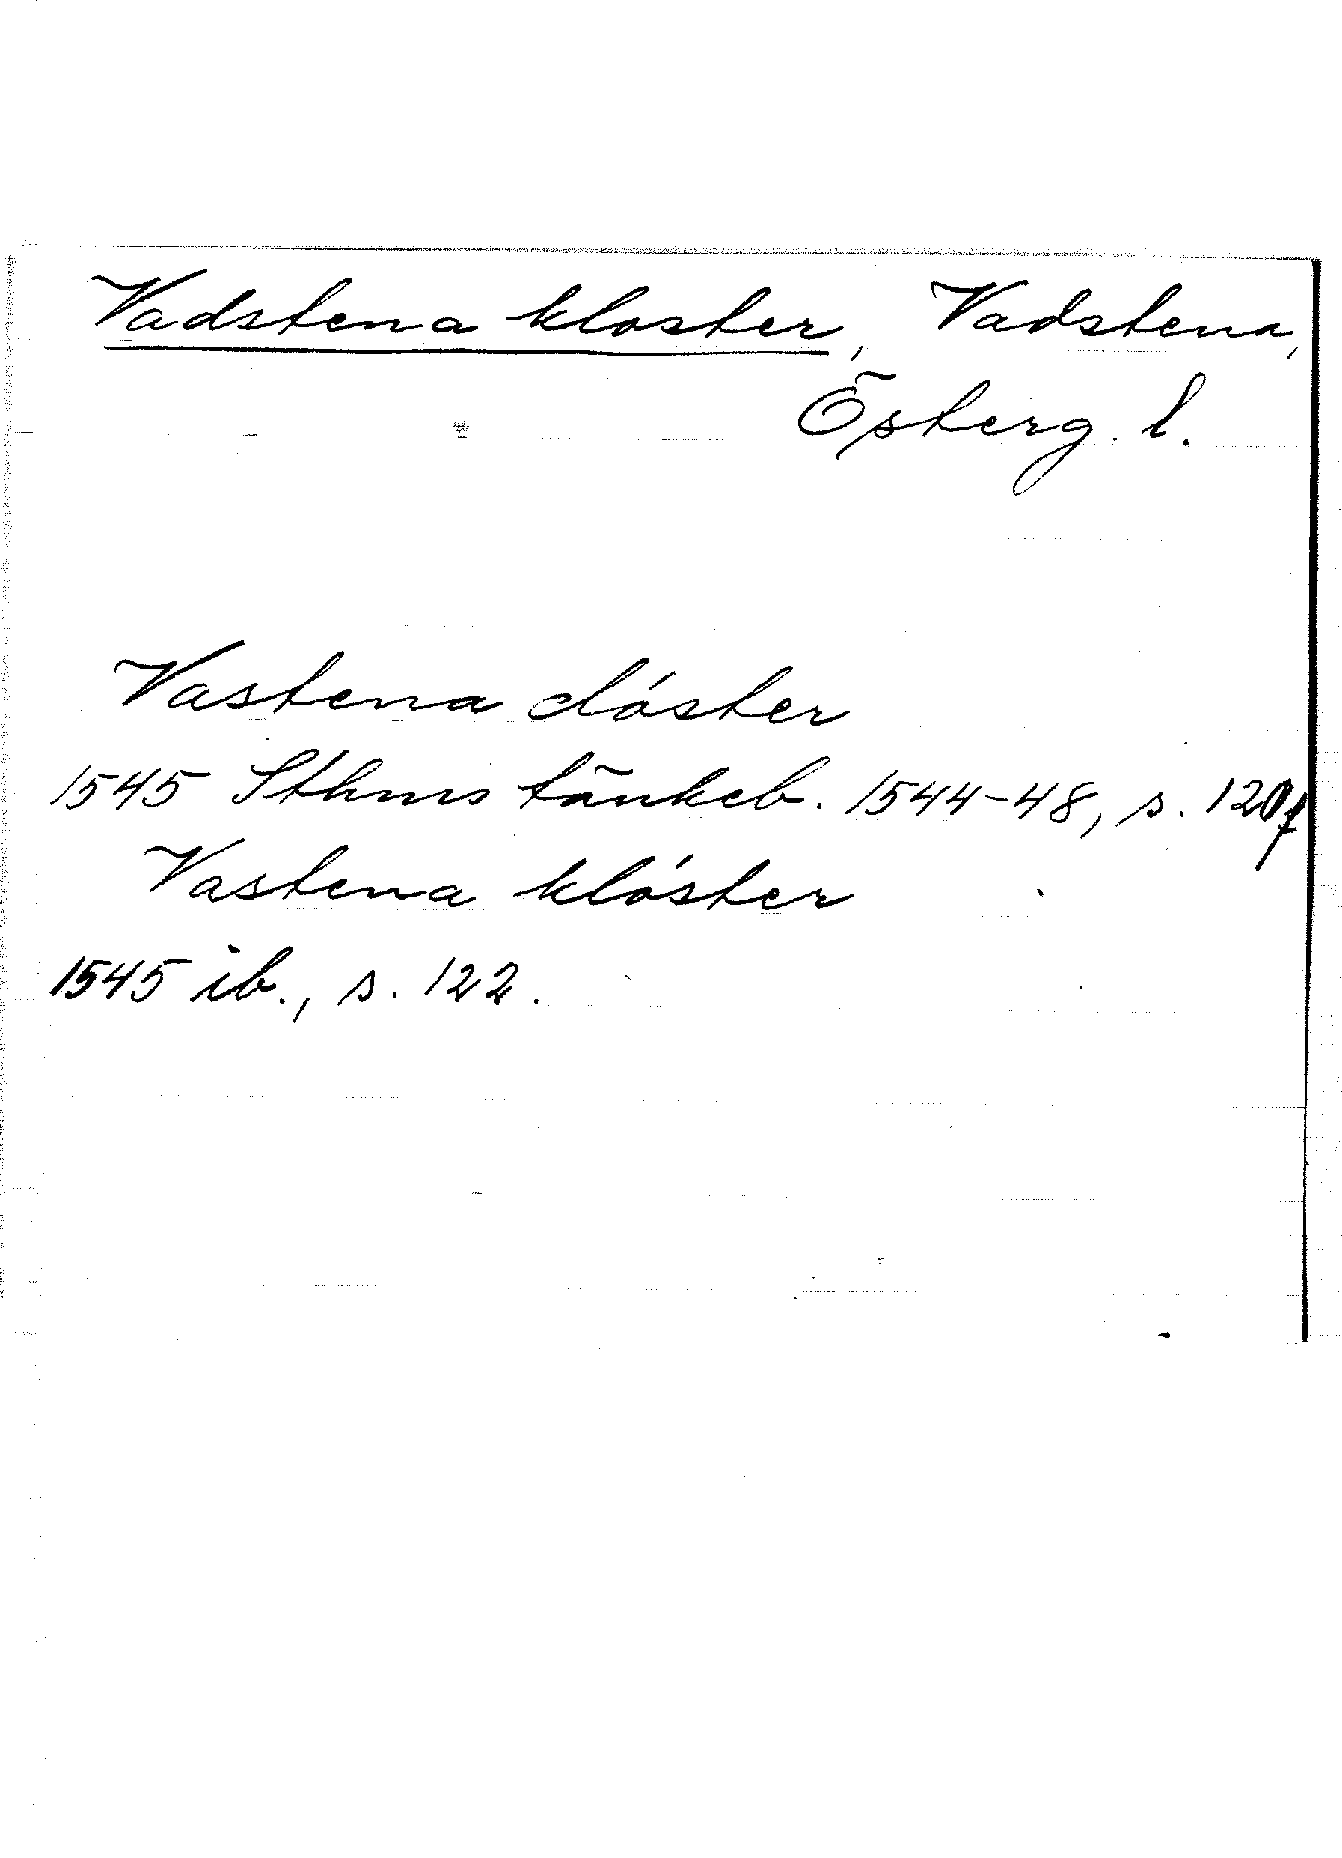 Vadstena kloster, Vadstena,
Östterg. l.
Vastena clóster
1545 Sthms tänkeb. 1544-48, s. 120f
Vastena klóster
1545 ib., s. 122.